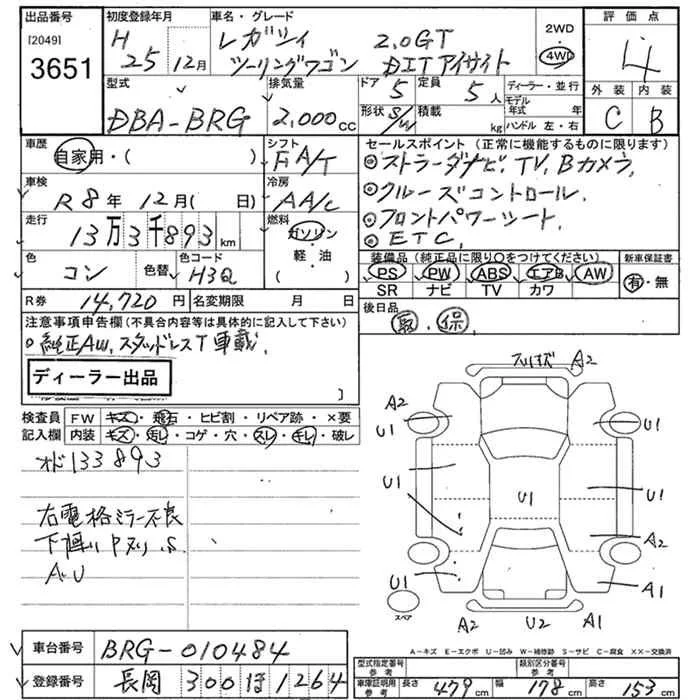 出品番号 [2049] 3651
初度登録年月 H 25年 12月
車名・グレード レガシィ 2.0GT
ツーリングワゴン DITアイサイト
2WD
4WD
評価点 4
外装 C 内装 B
型式 DBA-BRG
排気量 2,000 cc
ドア 5 定員 5人
形状 S/W 積載 kg
ディーラー・並行
モデル年式 年
ハンドル 左・右
車歴 自家用・( )
シフト FA/T
車検 R8年 12月( 日)
冷房 AA/C
走行 13万3千893 km
燃料 ガソリン・軽油 ( )
色 コン 色替 色コード H3Q
R券 14,720円 名変期限 月 日
セールスポイント(正常に機能するものに限ります)
◎ストラーダナビ、TV、Bカメラ、
◎クルーズコントロール、
◎フロントパワーシート、
◎ETC、
装備品(純正品に限り○をつけてください)
PS PW ABS エアB AW
SR ナビ TV カワ
新車保証書 有・無
後日品 取.保
注意事項申告欄(不具合内容等は具体的に記入して下さい)
○純正AW、スタッドレスT車載、
ディーラー出品
検査員 FW キズ・飛石・ヒビ割・リペア跡・×要
記入欄 内装 キズ・汚レ・コゲ・穴・スレ・キレ・破レ
オド133893
右電格ミラー不良
下廻り Pヌリ.S
A.U
スリキズ A2
A2
U1 U1
U1 U1 U1
A2
U1 A1
スペア A2 U2 A1
A-キズ E-エクボ U-凹み W-補修跡 S-サビ C-腐食 XX-交換済
車台番号 BRG-010484
登録番号 長岡 300 ほ 1264
型式指定番号 参考 類別区分番号 参考
車庫証明用 参考 長さ 479cm 幅 178cm 高さ 153cm